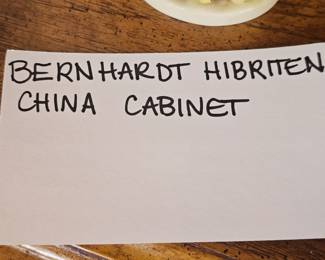 BERNHARDT HIBRITEN
CHINA CABINET